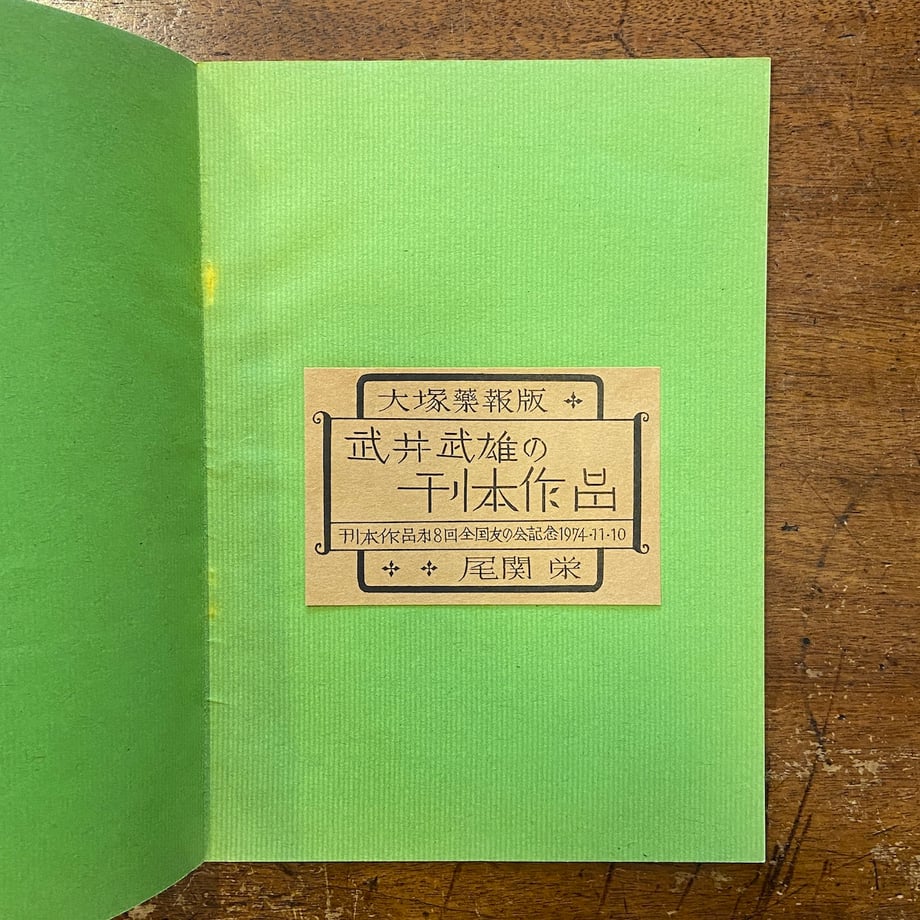 大塚藥報版
武井武雄の
刊本作品
刊本作品才8回全国友の会記念1974·11·10
尾関 栄